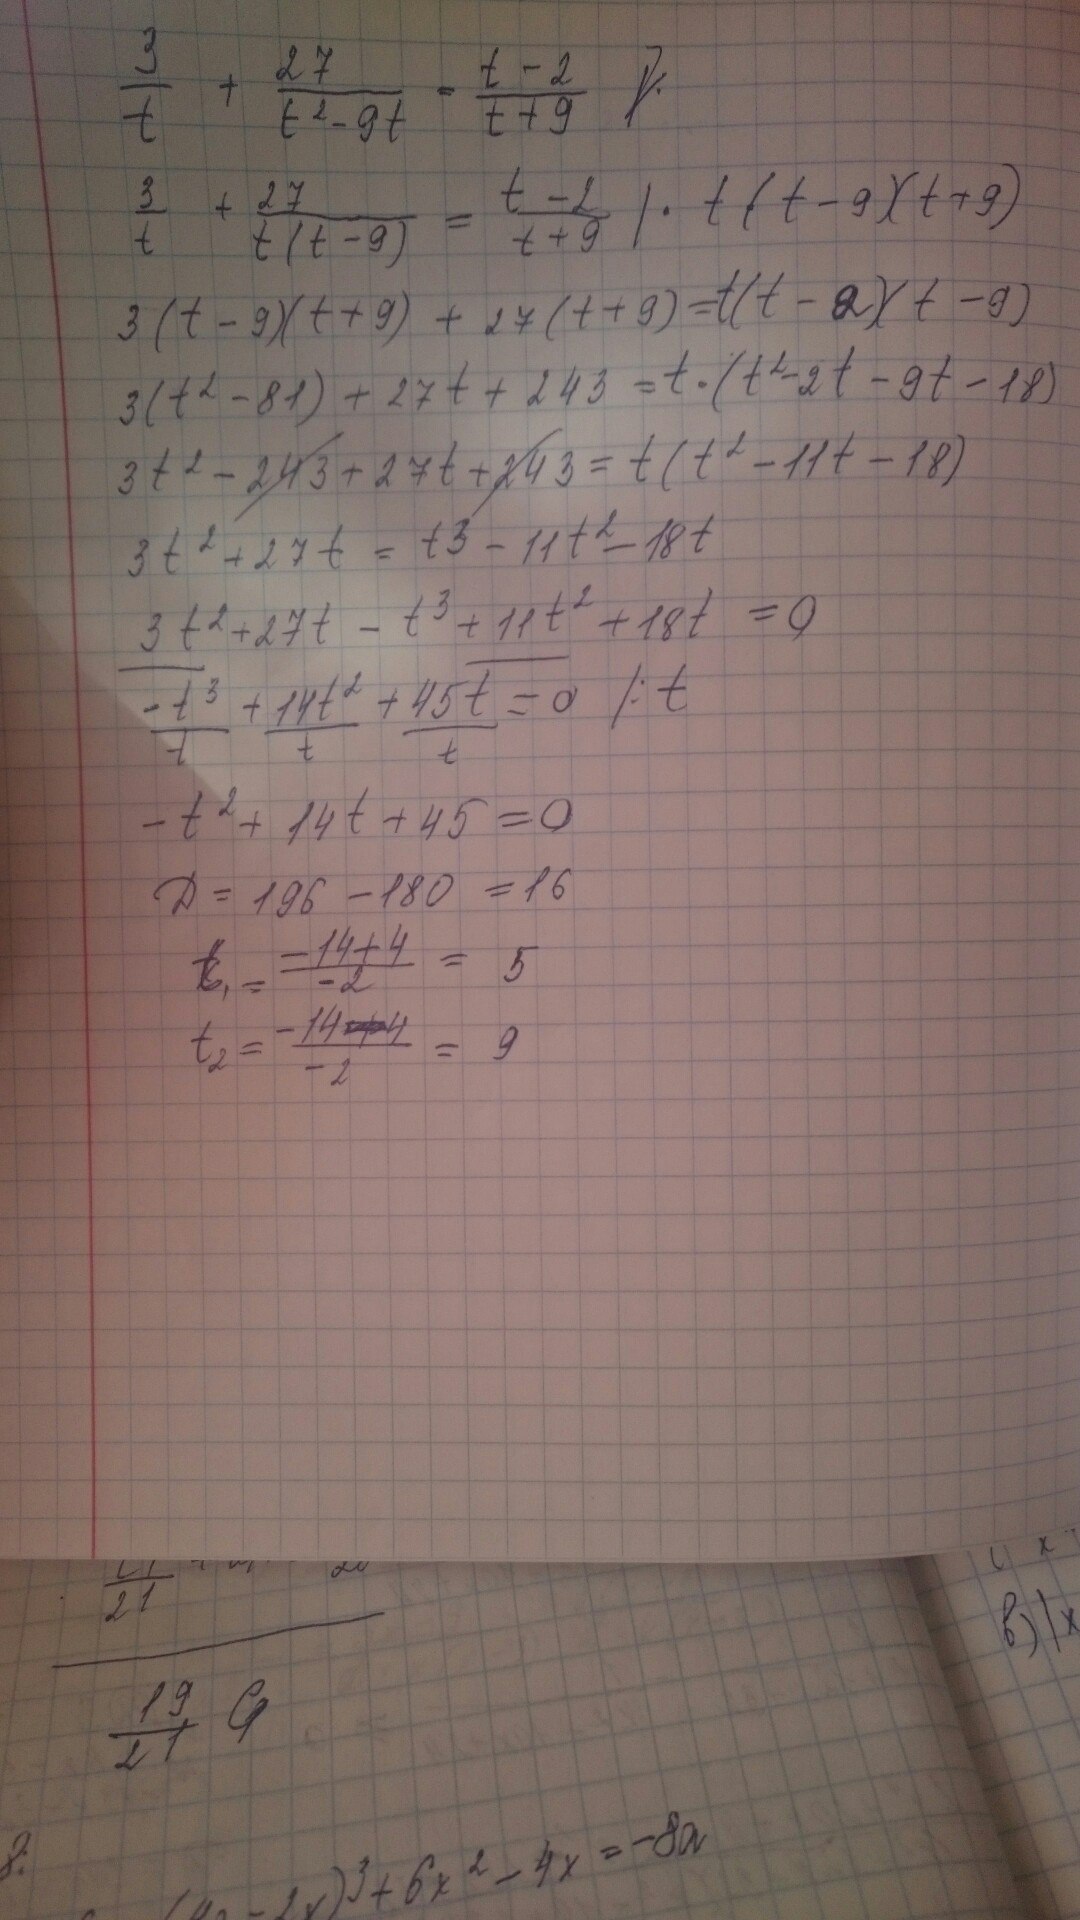 3/t + 27/(t²-9t) = (t-2)/(t+9) /·
3/t + 27/(t(t-9)) = (t-2)/(t+9) /· t(t-9)(t+9)
3(t-9)(t+9) + 27(t+9) = t(t-2)(t-9)
3(t²-81) + 27t + 243 = t·(t²-2t-9t-18)
3t² - 243 + 27t + 243 = t(t²-11t-18)
3t² + 27t = t³ - 11t² - 18t
3t² + 27t - t³ + 11t² + 18t = 0
-t³/t + 14t²/t + 45t/t = 0 /:t
-t² + 14t + 45 = 0
D = 196 - 180 = 16
t₁ = (-14+4)/-2 = 5
t₂ = (-14-4)/-2 = 9
21
19/21
в) |x
8.
-2x)³ + 6x² - 4x = -8a